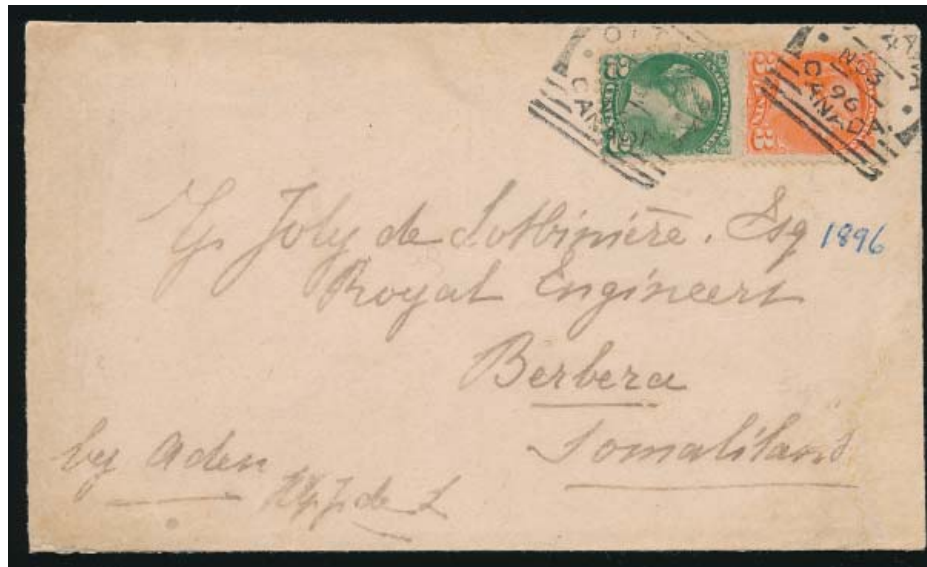 OTTAWA
N 63
96
CANADA
CANADA
Joly de Lotbinière. Esq
1896
Royal Engineers
Berbera
Somaliland
by Aden
H.G.J. de L